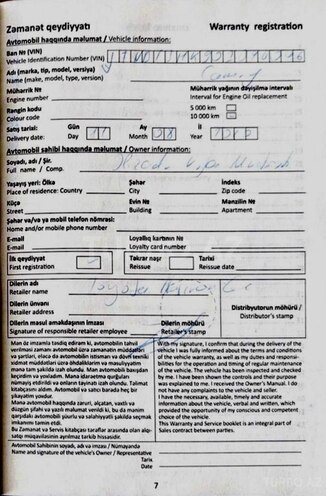 Zəmanət qeydiyyatı Warranty registration
Avtomobil haqqında məlumat / Vehicle information:
Ban № (VIN)
Vehicle Identification Number (VIN)
Adı (marka, tip, model, versiya)
Name (make, model, type, version) Camry
Mühərrik № Mühərrik yağının dəyişilmə intervalı
Engine number Interval for Engine Oil replacement
Rəngin kodu 5 000 km
Colour code 10 000 km
Satış tarixi: Gün Ay İl
Delivery date: Day 17 Month 08 Year
Avtomobil sahibi haqqında məlumat / Owner information:
Soyadı, adı / Şir.
Full name / Comp.
Yaşayış yeri: Ölkə Şəhər İndeks
Place of residence: Country City Zip code
Küçə Evin № Mənzilin №
Street Building Apartment
Şəhər və/və ya mobil telefon nömrəsi:
Home and/or mobile phone number
E-mail Loyallıq kartının №
E-mail Loyalty card number
İlk qeydiyyat Təkrar nəşr Tarixi
First registration Reissue Reissue date
Dilerin adı
Retailer name Toyota
Dilerin ünvanı Distribyutorun möhürü /
Retailer address Distributor's stamp
Dilerin məsul əməkdaşının imzası Dilerin möhürü
Signature of responsible retailer employee Retailer's stamp
Mən öz imzamla təsdiq edirəm ki, avtomobilin təhvil
verilməsi zamanı avtomobil üzrə zəmanətin müddəti
və şərtləri, eləcə də avtomobilin istismarı və dövri texniki
xidmət müddətləri üzrə öhdəliklərim və məsuliyyətim
mənə tam şəkildə izah olundu. Mənə avtomobilin baxışdan
keçirilən və yoxlanılan. Mənə avtomatika qurğuları
nümayiş etdirildi və onların təyinatı izah olundu. Təlimat
kitabçasını aldım. Avtomobil və satıcı barədə heç bir
şikayətim yoxdur.
Mənə avtomobil haqqında zəruri, olçatan, vaxtlı və
düzgün yazılı və şifahi məlumat verildi ki, bu da mənim
qarşıdakı avtomobili şüurlu və səlahiyyətli şəkildə seçmək
imkanımı təmin etdi.
Bu Zəmanət və Servis kitabçası tərəflər arasında olan alqı-
satqı müqaviləsinin ayrılmaz tərkib hissəsidir.
With my signature, I confirm that during the delivery of the
vehicle I was fully informed about the terms and conditions
of the vehicle warranty, as well as my duties and responsi-
bilities for the operation and timing of regular maintenance
of the vehicle. The vehicle has been inspected and checked
by me. I have been shown the controls and their purpose
was explained to me. I received the Owner's Manual. I do
not have any complaints to the vehicle and seller.
I have the necessary, available, timely and accurate
information about the vehicle, verbal and written, which
provided the opportunity of my conscious and competent
choice of the vehicle.
This Warranty and Service booklet is an integral part of
Sales contract between parties.
Avtomobil Sahibinin soyadı, adı və imzası / Nümayəndə
Name and signature of the vehicle's Owner / Representative
Tarix
Date
7